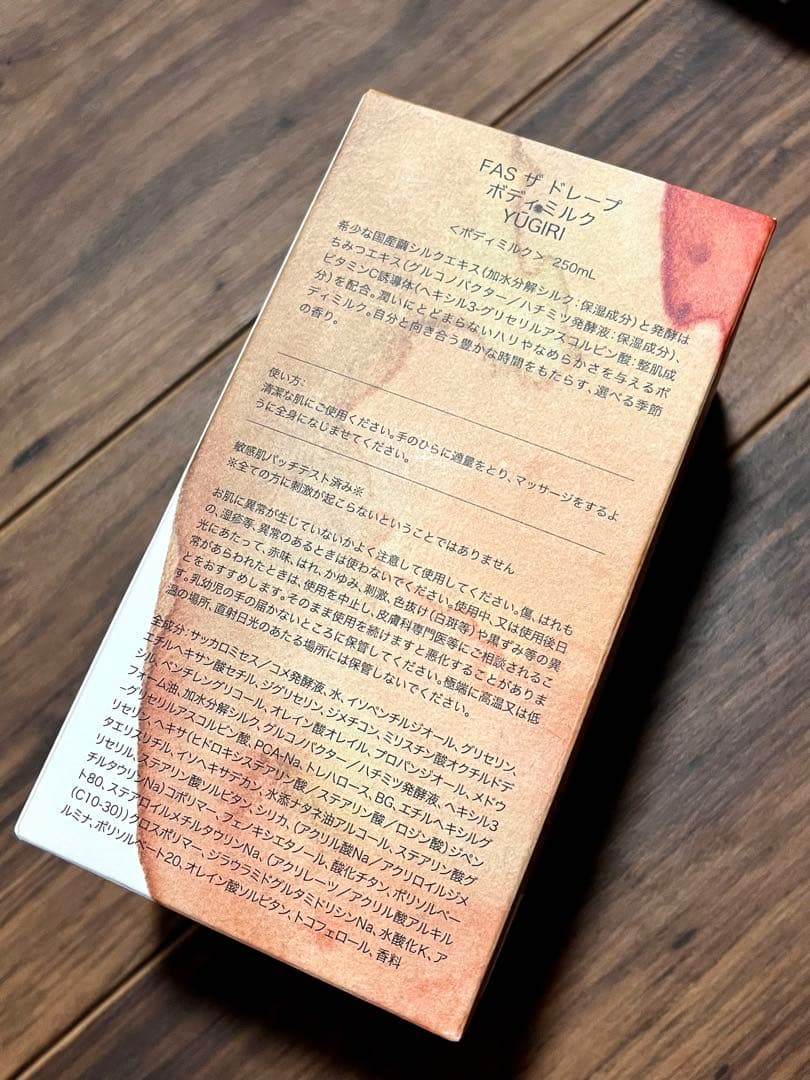 FAS ザ ドレープ
ボディミルク
YŪGIRI
＜ボディミルク＞ 250mL
希少な国産繭シルクエキス（加水分解シルク：保湿成分）と発酵は
ちみつエキス（グルコノバクター／ハチミツ発酵液：保湿成分）、
ビタミンC誘導体（ヘキシル3-グリセリルアスコルビン酸：整肌成
分）を配合。潤いにとどまらないハリやなめらかさを与えるボ
ディミルク。自分と向き合う豊かな時間をもたらす、選べる季節
の香り。
使い方：
清潔な肌にご使用ください。手のひらに適量をとり、マッサージをするよ
うに全身になじませてください。
敏感肌パッチテスト済み※
※全ての方に刺激が起こらないということではありません
お肌に異常が生じていないかよく注意して使用してください。傷、はれも
の、湿疹等、異常のあるときは使わないでください。使用中、又は使用後日
光にあたって、赤味、はれ、かゆみ、刺激、色抜け（白斑等）や黒ずみ等の異
常があらわれたときは、使用を中止し、皮膚科専門医等にご相談されるこ
とをおすすめします。そのまま使用を続けますと悪化することがありま
す。乳幼児の手の届かないところに保管してください。極端に高温又は低
温の場所、直射日光のあたる場所には保管しないでください。
全成分：サッカロミセス／コメ発酵液、水、イソペンチルジオール、グリセリン、
エチルヘキサン酸セチル、ジグリセリン、ジメチコン、ミリスチン酸オクチルドデ
シル、ペンチレングリコール、オレイン酸オレイル、プロパンジオール、メドウ
フォーム油、加水分解シルク、グルコノバクター／ハチミツ発酵液、ヘキシル3
-グリセリルアスコルビン酸、PCA-Na、トレハロース、BG、エチルヘキシルグ
リセリン、ヘキサ（ヒドロキシステアリン酸／ステアリン酸／ロジン酸）ジペン
タエリスリチル、イソヘキサデカン、水添ナタネ油アルコール、ステアリン酸グ
リセリル、ステアリン酸ソルビタン、シリカ、（アクリル酸Na／アクリロイルジメ
チルタウリンNa）コポリマー、フェノキシエタノール、酸化チタン、ポリソルベー
ト80、ステアロイルメチルタウリンNa、（アクリレーツ／アクリル酸アルキル
（C10-30））クロスポリマー、ジラウラミドグルタミドリシンNa、水酸化K、ア
ルミナ、ポリソルベート20、オレイン酸ソルビタン、トコフェロール、香料